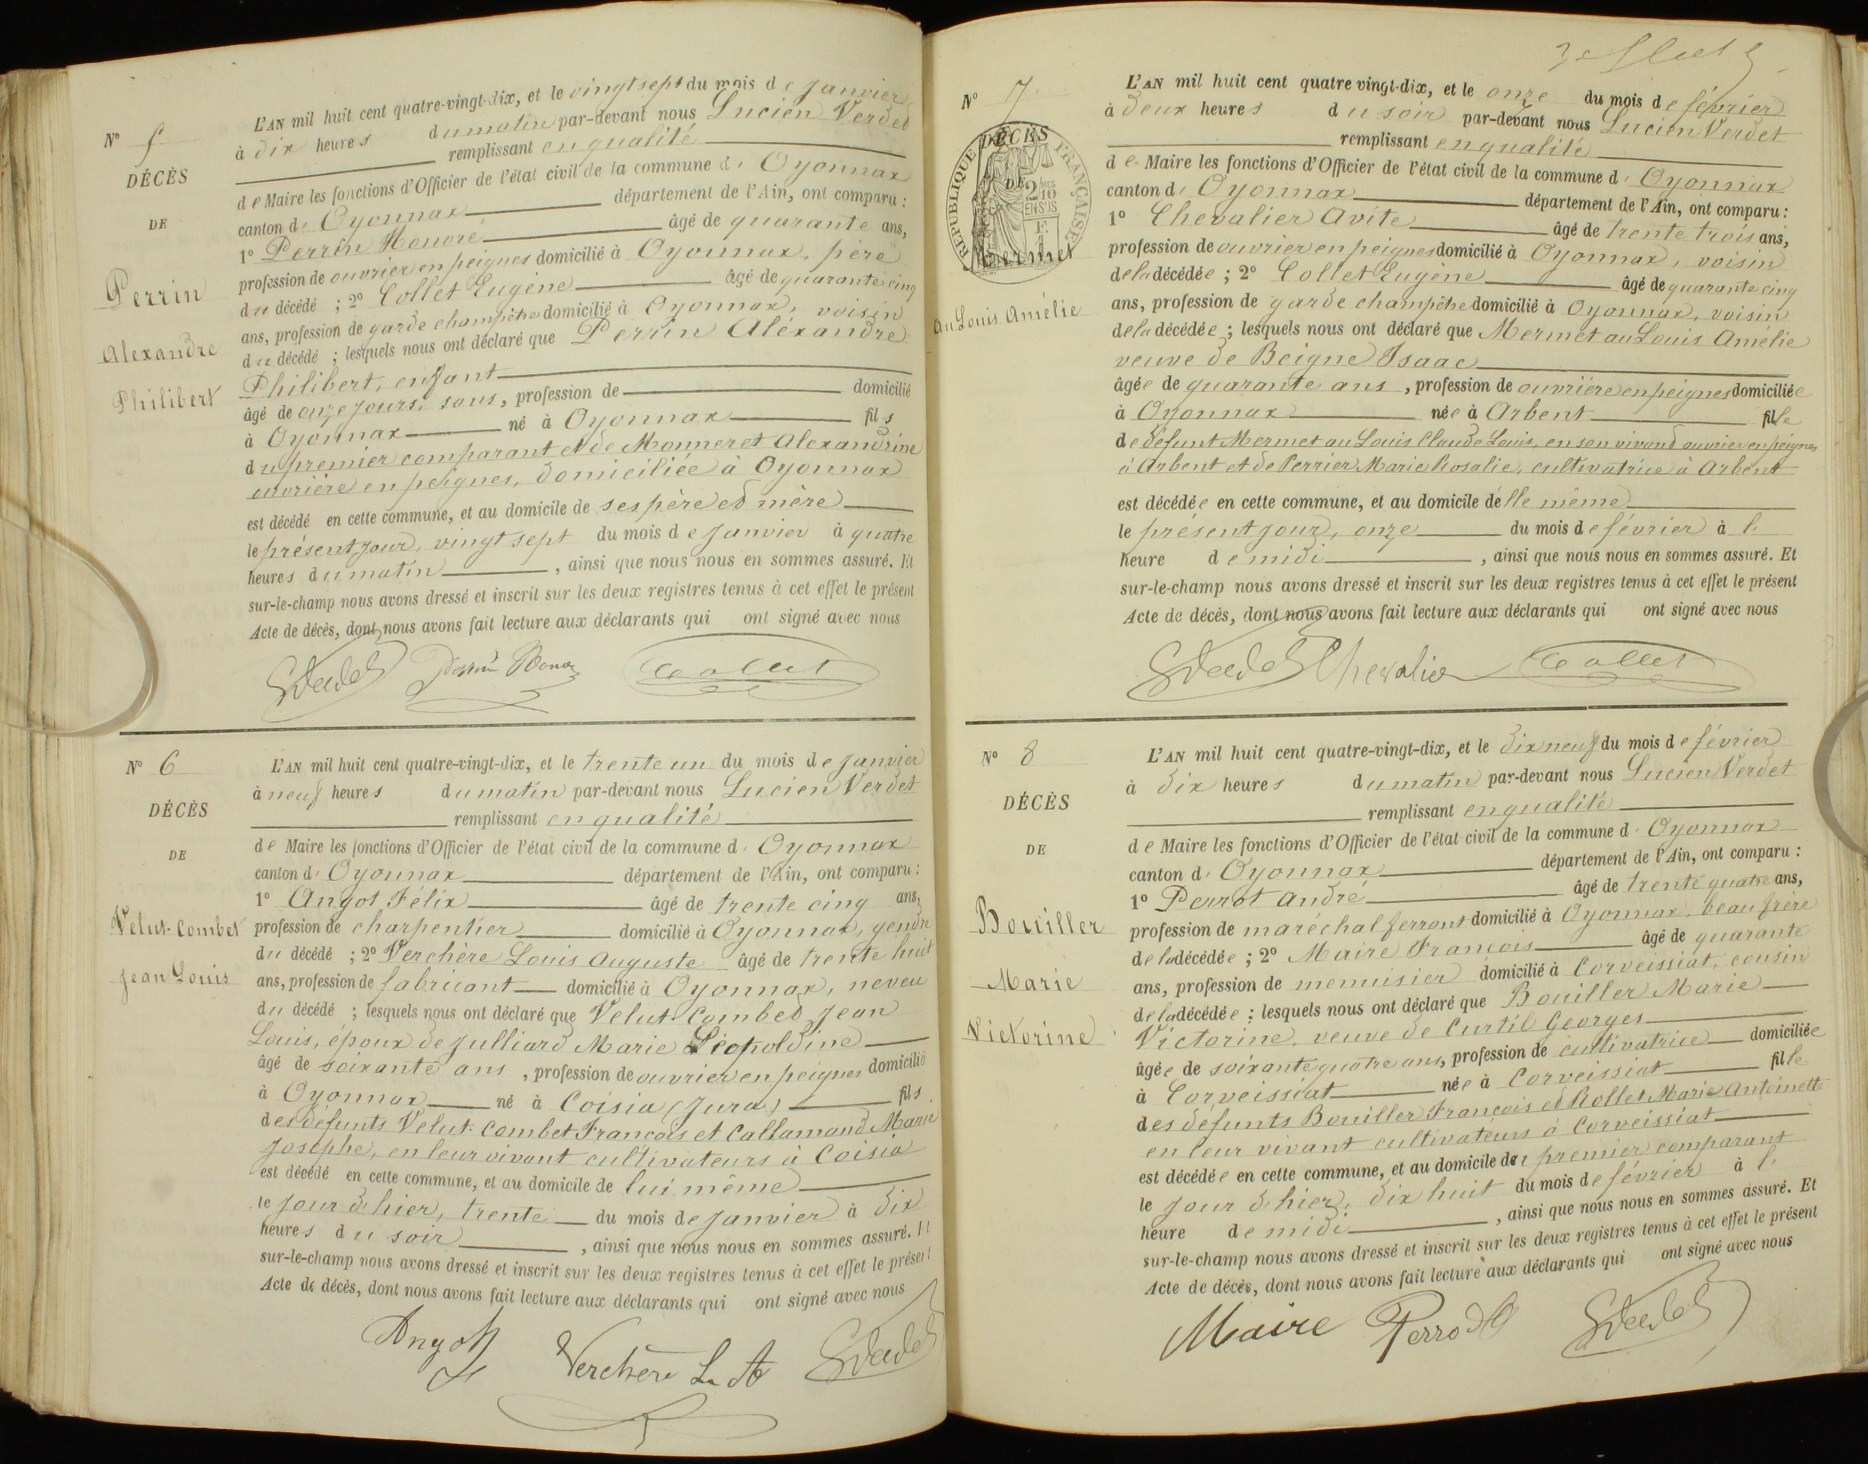 N° 5
DÉCÈS
DE
Perrin
Alexandre
Philibert
L'AN mil huit cent quatre-vingt-dix, et le vingt sept du mois de janvier
à dix heures du matin par-devant nous Lucien Verdet
remplissant en qualité
de Maire les fonctions d'Officier de l'état civil de la commune d' Oyonnax
canton d' Oyonnax département de l'Ain, ont comparu :
1° Perrin Honoré âgé de quarante ans,
profession de ouvrier en peignes domicilié à Oyonnax, père
du décédé ; 2° Collet Eugène âgé de quarante cinq
ans, profession de garde champêtre domicilié à Oyonnax, voisin
du décédé ; lesquels nous ont déclaré que Perrin Aléxandre
Philibert, enfant
âgé de onze jours, sans, profession de domicilié
à Oyonnax né à Oyonnax fils
du premier comparant et de Monneret Alexandrine
ouvrière en peignes, domiciliée à Oyonnax
est décédé en cette commune, et au domicile de ses père et mère
le présent jour, vingt sept du mois de janvier à quatre
heures du matin , ainsi que nous nous en sommes assuré. Et
sur-le-champ nous avons dressé et inscrit sur les deux registres tenus à cet effet le présent
Acte de décès, dont nous avons fait lecture aux déclarants qui ont signé avec nous
Perrin Collet
N° 6
DÉCÈS
DE
Velut-Combet
Jean Louis
L'AN mil huit cent quatre-vingt-dix, et le trente un du mois de janvier
à neuf heures du matin par-devant nous Lucien Verdet
remplissant en qualité
de Maire les fonctions d'Officier de l'état civil de la commune d' Oyonnax
canton d' Oyonnax département de l'Ain, ont comparu :
1° Angot Félix âgé de trente cinq ans,
profession de charpentier domicilié à Oyonnax, gendre
du décédé ; 2° Verchère Louis Auguste âgé de trente huit
ans, profession de fabricant domicilié à Oyonnax, neveu
du décédé ; lesquels nous ont déclaré que Velut-Combet Jean
Louis, époux de Julliard Marie Léopoldine
âgé de soixante ans , profession de ouvrier en peignes domicilié
à Oyonnax né à Coisia (Jura) fils
des défunts Velut-Combet François et Callamand Marie
Josephe, en leur vivant cultivateurs à Coisia
est décédé en cette commune, et au domicile de lui même
le jour d'hier, trente du mois de janvier à dix
heures du soir , ainsi que nous nous en sommes assuré. Et
sur-le-champ nous avons dressé et inscrit sur les deux registres tenus à cet effet le présent
Acte de décès, dont nous avons fait lecture aux déclarants qui ont signé avec nous
Angot Verchère L. A
N° 7
DÉCÈS
DE
RÉPUBLIQUE FRANÇAISE
2/10 EN SUS
Mermet
au Louis Amélie
L'AN mil huit cent quatre vingt-dix, et le onze du mois de février
à deux heures du soir par-devant nous Lucien Verdet
remplissant en qualité
de Maire les fonctions d'Officier de l'état civil de la commune d' Oyonnax
canton d' Oyonnax département de l'Ain, ont comparu :
1° Chevalier Avite âgé de trente trois ans,
profession de ouvrier en peignes domicilié à Oyonnax, voisin
de la décédée ; 2° Collet Eugène âgé de quarante cinq
ans, profession de garde champêtre domicilié à Oyonnax, voisin
de la décédée ; lesquels nous ont déclaré que Mermet au Louis Amélie
veuve de Beigne Isaac
âgée de quarante ans , profession de ouvrière en peignes domiciliée
à Oyonnax née à Arbent fille
de défunt Mermet au Louis Claude Louis, en son vivant ouvrier en peignes
à Arbent et de Perrier Marie Rosalie, cultivatrice à Arbent
est décédée en cette commune, et au domicile d'elle même
le présent jour, onze du mois de février à l'
heure de midi , ainsi que nous nous en sommes assuré. Et
sur-le-champ nous avons dressé et inscrit sur les deux registres tenus à cet effet le présent
Acte de décès, dont nous avons fait lecture aux déclarants qui ont signé avec nous
Chevalier Collet
N° 8
DÉCÈS
DE
Bouiller
Marie
Victorine
L'AN mil huit cent quatre-vingt-dix, et le dix neuf du mois de février
à dix heures du matin par-devant nous Lucien Verdet
remplissant en qualité
de Maire les fonctions d'Officier de l'état civil de la commune d' Oyonnax
canton d' Oyonnax département de l'Ain, ont comparu :
1° Perrot André âgé de trente quatre ans,
profession de maréchal ferrant domicilié à Oyonnax, beau frère
de la décédée ; 2° Maire François âgé de quarante
ans, profession de menuisier domicilié à Corveissiat, cousin
de la décédée ; lesquels nous ont déclaré que Bouiller Marie
Victorine, veuve de Curtil Georges
âgée de soixante quatre ans, profession de cultivatrice domiciliée
à Corveissiat née à Corveissiat fille
des défunts Bouiller François et Rollet Marie Antoinette
en leur vivant cultivateurs à Corveissiat
est décédée en cette commune, et au domicile du premier comparant
le jour d'hier, dix huit du mois de février à l'
heure de midi , ainsi que nous nous en sommes assuré. Et
sur-le-champ nous avons dressé et inscrit sur les deux registres tenus à cet effet le présent
Acte de décès, dont nous avons fait lecture aux déclarants qui ont signé avec nous
Maire Perrot